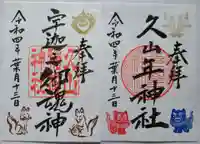 奉拝
宇迦之御魂神
令和四年葉月十三日
奉拝
久山年神社
令和四年葉月十三日